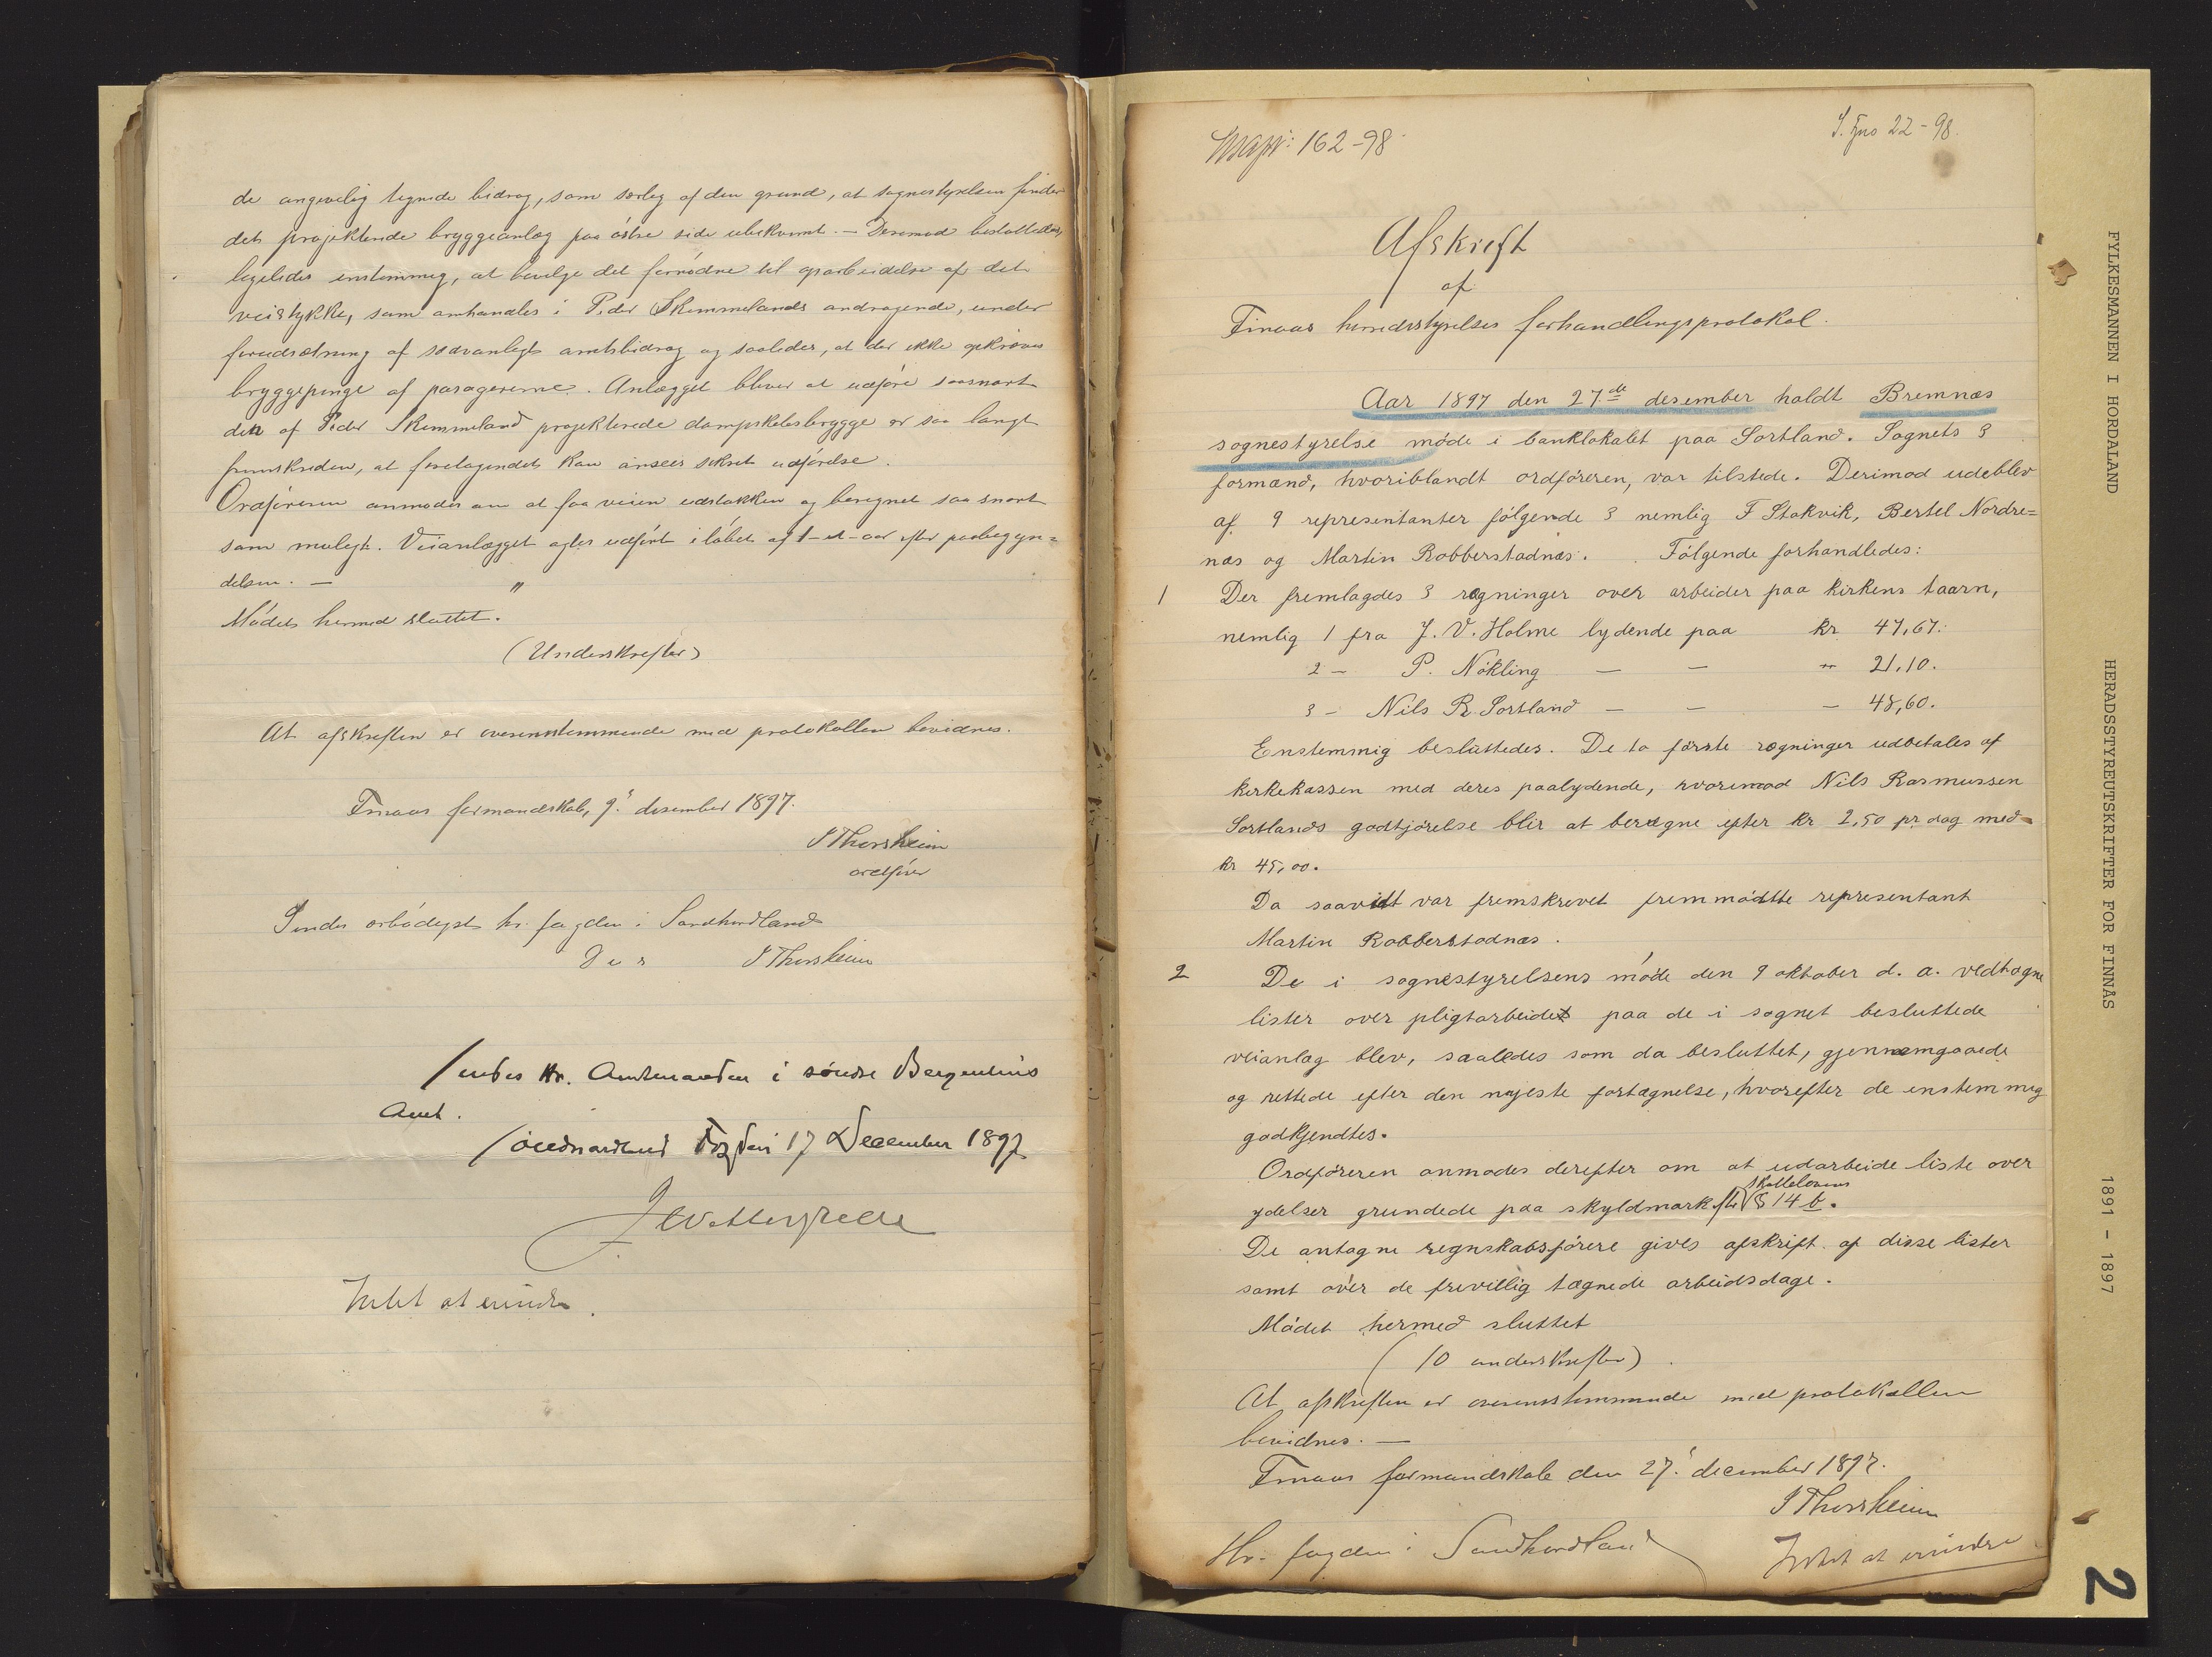 de angivelig tegnede bidrag, som særleg af den grund, at sognestyrelsen finder
det projekterede bryggeanlæg paa østre side ubekvemt. — Derimod besluttedes
ligeledes enstemmig, at bevilge det fornødne til oparbeidelse af det
veistykke, som omhandles i Peder Skimmelands andragende, under
forudsætning af sedvanligt amtsbidrag og saaledes, at der ikke opkræves
bryggepenge af pasagererne. Anlægget bliver at udføre saasnart
den af Peder Skimmeland projekterede dampskibsbrygge er saa langt
fremskreden, at foretagendet kan ansees sikret udførelse.
Ordføreren anmodes om at faa veien udstukken og beregnet saa snart
som muligt. Veianlægget agtes udført i løbet af 1-et-aar efter paabegyn=
delsen. — "
Mødet hermed sluttet.
(Underskrefter)
At afskreften er overensstemmende med protokollen bevidnes.
Finaas formandskab, 9. desember 1897.
S Thorsheim
ordfører
Sendes ærbødigst hr. fogden i Søndhordland
D u s S Thorsheim
Sendes Hr. Amtmanden i søndre Bergenhus
Amt.
Søndhordland Fogderi 17 December 1897
Intet at erindre.
FYLKESMANNEN I HORDALAND HERADSSTYREUTSKRIFTER FOR FINNÅS 1891 - 1897
162-98
S. Jno 22-98.
Afskrift
af
Finaas herredsstyrelses forhandlingsprotokol.
Aar 1897 den 27de desember holdt Bremnæs
sognestyrelse møde i banklokalet paa Sortland. Sognets 3
formænd, hvoriblandt ordføreren, var tilstede. Derimod udeblev
af 9 representanter følgende 3 nemlig F Stokvik, Bertel Nordre=
næs og Martin Robberstadnæs. Følgende forhandledes:
1 Der fremlagdes 3 rægninger over arbeider paa kirkens taarn,
nemlig 1 fra J. V. Holme lydende paa kr 47,67.
2 - P. Nökling — — - 21.10.
3 - Nils R. Sortland — — - 48,60.
Enstemmig besluttedes. De to første rægninger udbetales af
kirkekassen med deres paalydende, hvorimod Nils Rasmussen
Sortlands godtjørelse blir at berægne efter kr 2,50 pr. dag med
kr 45,00.
Da saavidt var fremskrevet fremmødtte representant
Martin Robberstadnæs.
2 De i sognestyrelsens møde den 9 oktober d. a. vedtagne
lister over pligtarbeidet paa de i sognet besluttede
veianlæg blev, saaledes som da besluttet, gjennemgaaede
og rettede efter den nyeste fortægnelse, hvorefter de enstemmig
godkjendtes.
Ordføreren anmodes derefter om at udarbeide liste over
ydelser grundede paa skyldmark efter skattelovens § 14 b.
De antagne regnskabsførere gives afskrift af disse lister
samt over de frevillig tægnede arbeidsdage.
Mødet hermed sluttet
(10 underskrefter)
At afskreften er overensstemmende med protokollen
bevidnes. —
Finaas formandskab den 27. december 1897.
S Thorsheim
Hr. fogden i Søndhordland
Intet at erindre
2